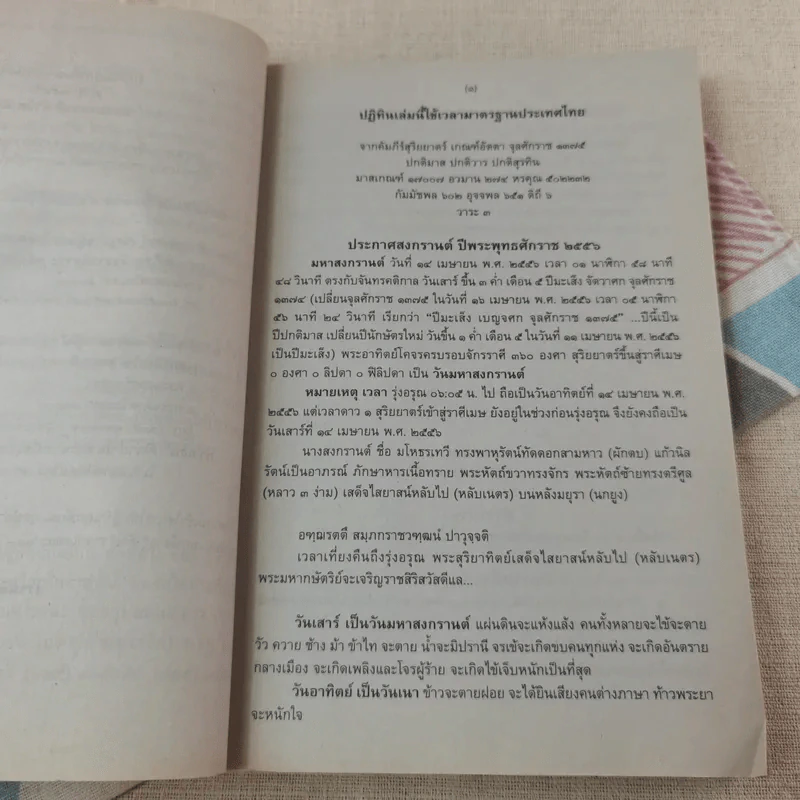 (๑)
ปฏิทินเล่มนี้ใช้เวลามาตรฐานประเทศไทย
จากคัมภีร์สุริยยาตร์ เกณฑ์อัตตา จุลศักราช ๑๓๗๕
ปกติมาส ปกติวาร ปกติสุรทิน
มาสเกณฑ์ ๑๗๐๐๗ อวมาน ๒๗๙ หรคุณ ๕๐๒๒๓๒
กัมมัชพล ๖๐๒ อุจจพล ๖๕๑ ดิถี ๖
วาระ ๓
ประกาศสงกรานต์ ปีพระพุทธศักราช ๒๕๕๖
มหาสงกรานต์ วันที่ ๑๔ เมษายน พ.ศ. ๒๕๕๖ เวลา ๐๑ นาฬิกา ๕๘ นาที
๔๘ วินาที ตรงกับจันทรคติกาล วันเสาร์ ขึ้น ๓ ค่ำ เดือน ๕ ปีมะเส็ง จัตวาศก จุลศักราช
๑๓๗๔ (เปลี่ยนจุลศักราช ๑๓๗๕ ในวันที่ ๑๖ เมษายน พ.ศ. ๒๕๕๖ เวลา ๐๕ นาฬิกา
๕๖ นาที ๒๔ วินาที เรียกว่า “ปีมะเส็ง เบญจศก จุลศักราช ๑๓๗๕” ...ปีนี้เป็น
ปีปกติมาส เปลี่ยนปีนักษัตรใหม่ วันขึ้น ๑ ค่ำ เดือน ๕ ในวันที่ ๑๑ เมษายน พ.ศ. ๒๕๕๖
เป็นปีมะเส็ง) พระอาทิตย์โคจรครบรอบจักรราศี ๓๖๐ องศา สุริยยาตร์ขึ้นสู่ราศีเมษ
๐ องศา ๐ ลิปดา ๐ ฟิลิปดา เป็น วันมหาสงกรานต์
หมายเหตุ เวลา รุ่งอรุณ ๐๖:๐๕ น. ไป ถือเป็นวันอาทิตย์ที่ ๑๔ เมษายน พ.ศ.
๒๕๕๖ แต่เวลาดาว ๑ สุริยยาตร์เข้าสู่ราศีเมษ ยังอยู่ในช่วงก่อนรุ่งอรุณ จึงยังคงถือเป็น
วันเสาร์ที่ ๑๔ เมษายน พ.ศ. ๒๕๕๖
นางสงกรานต์ ชื่อ มโหธรเทวี ทรงพาหุรัตน์ทัดดอกสามหาว (ผักตบ) แก้วนิล
รัตน์เป็นอาภรณ์ ภักษาหารเนื้อทราย พระหัตถ์ขวาทรงจักร พระหัตถ์ซ้ายทรงตรีศูล
(หลาว ๓ ง่าม) เสด็จไสยาสน์หลับไป (หลับเนตร) บนหลังมยุรา (นกยูง)
อฑฺฒรตตี สมฺภกราชวฑฺฒนํ ปาวุจฺจติ
เวลาเที่ยงคืนถึงรุ่งอรุณ พระสุริยาทิตย์เสด็จไสยาสน์หลับไป (หลับเนตร)
พระมหากษัตริย์จะเจริญราชสิริสวัสดีแล...
วันเสาร์ เป็นวันมหาสงกรานต์ แผ่นดินจะแห้งแล้ง คนทั้งหลายจะไข้จะตาย
วัว ควาย ช้าง ม้า ข้าไท จะตาย น้ำจะมิปรานี จรเข้จะเกิดขบคนทุกแห่ง จะเกิดอันตราย
กลางเมือง จะเกิดเพลิงและโจรผู้ร้าย จะเกิดไข้เจ็บหนักเป็นที่สุด
วันอาทิตย์ เป็นวันเนา ข้าวจะตายฝอย จะได้ยินเสียงคนต่างภาษา ท้าวพระยา
จะหนักใจ